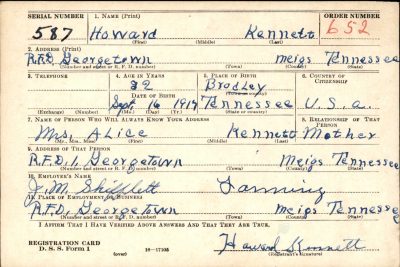 SERIAL NUMBER 1. NAME (Print) ORDER NUMBER
587 Howard Kennett 652
(First) (Middle) (Last)
2. ADDRESS (Print)
R.F.D. Georgetown Meigs Tennessee
(Number and street or R. F. D. number) (Town) (County) (State)
3. TELEPHONE 4. AGE IN YEARS 5. PLACE OF BIRTH 6. COUNTRY OF CITIZENSHIP
22 Bradley
(Town or county)
DATE OF BIRTH
Sept. 16 1917 Tennessee U.S.A.
(Exchange) (Number) (Mo.) (Day) (Yr.) (State or country)
7. NAME OF PERSON WHO WILL ALWAYS KNOW YOUR ADDRESS 8. RELATIONSHIP OF THAT PERSON
Mrs. Alice Kennett Mother
(Mr., Mrs., Miss) (First) (Middle) (Last)
9. ADDRESS OF THAT PERSON
R.F.D. 1. Georgetown Meigs Tennessee
(Number and street or R. F. D. number) (Town) (County) (State)
10. EMPLOYER'S NAME
J. M. Shifflett Farming
11. PLACE OF EMPLOYMENT OR BUSINESS
R.F.D. Georgetown Meigs Tennessee
(Number and street or R. F. D. number) (Town) (County) (State)
I AFFIRM THAT I HAVE VERIFIED ABOVE ANSWERS AND THAT THEY ARE TRUE.
REGISTRATION CARD
D. S. S. Form 1 16—17105 Howard Kennett
(over) (Registrant's signature)